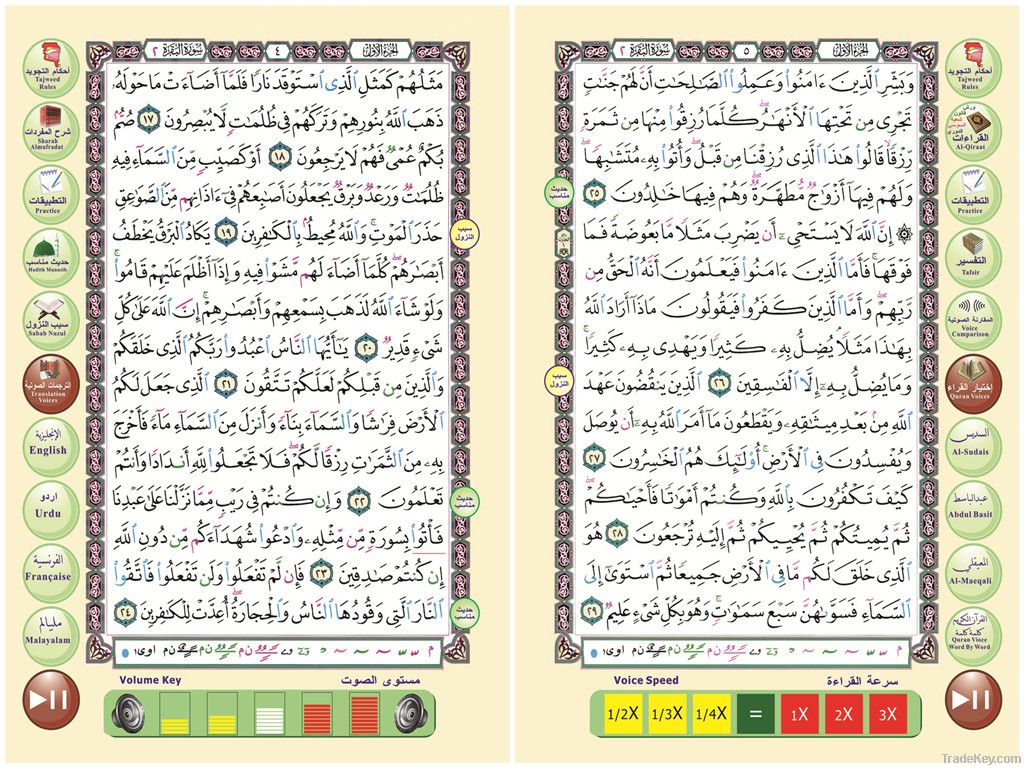 الجزء الأول
٤
سورة البقرة ٢
مَثَلُهُمْ كَمَثَلِ ٱلَّذِى ٱسْتَوْقَدَ نَارًا فَلَمَّآ أَضَآءَتْ مَا حَوْلَهُۥ
ذَهَبَ ٱللَّهُ بِنُورِهِمْ وَتَرَكَهُمْ فِى ظُلُمَٰتٍ لَّا يُبْصِرُونَ ١٧ صُمٌّۢ
بُكْمٌ عُمْىٌ فَهُمْ لَا يَرْجِعُونَ ١٨ أَوْ كَصَيِّبٍ مِّنَ ٱلسَّمَآءِ فِيهِ
ظُلُمَٰتٌ وَرَعْدٌ وَبَرْقٌ يَجْعَلُونَ أَصَٰبِعَهُمْ فِىٓ ءَاذَانِهِم مِّنَ ٱلصَّوَٰعِقِ
حَذَرَ ٱلْمَوْتِ ۚ وَٱللَّهُ مُحِيطٌۢ بِٱلْكَٰفِرِينَ ١٩ يَكَادُ ٱلْبَرْقُ يَخْطَفُ
أَبْصَٰرَهُمْ ۖ كُلَّمَآ أَضَآءَ لَهُم مَّشَوْا۟ فِيهِ وَإِذَآ أَظْلَمَ عَلَيْهِمْ قَامُوا۟ ۚ
وَلَوْ شَآءَ ٱللَّهُ لَذَهَبَ بِسَمْعِهِمْ وَأَبْصَٰرِهِمْ ۚ إِنَّ ٱللَّهَ عَلَىٰ كُلِّ
شَىْءٍ قَدِيرٌ ٢٠ يَٰٓأَيُّهَا ٱلنَّاسُ ٱعْبُدُوا۟ رَبَّكُمُ ٱلَّذِى خَلَقَكُمْ
وَٱلَّذِينَ مِن قَبْلِكُمْ لَعَلَّكُمْ تَتَّقُونَ ٢١ ٱلَّذِى جَعَلَ لَكُمُ
ٱلْأَرْضَ فِرَٰشًا وَٱلسَّمَآءَ بِنَآءً وَأَنزَلَ مِنَ ٱلسَّمَآءِ مَآءً فَأَخْرَجَ
بِهِۦ مِنَ ٱلثَّمَرَٰتِ رِزْقًا لَّكُمْ ۖ فَلَا تَجْعَلُوا۟ لِلَّهِ أَندَادًا وَأَنتُمْ
تَعْلَمُونَ ٢٢ وَإِن كُنتُمْ فِى رَيْبٍ مِّمَّا نَزَّلْنَا عَلَىٰ عَبْدِنَا
فَأْتُوا۟ بِسُورَةٍ مِّن مِّثْلِهِۦ وَٱدْعُوا۟ شُهَدَآءَكُم مِّن دُونِ ٱللَّهِ
إِن كُنتُمْ صَٰدِقِينَ ٢٣ فَإِن لَّمْ تَفْعَلُوا۟ وَلَن تَفْعَلُوا۟ فَٱتَّقُوا۟
ٱلنَّارَ ٱلَّتِى وَقُودُهَا ٱلنَّاسُ وَٱلْحِجَارَةُ ۖ أُعِدَّتْ لِلْكَٰفِرِينَ ٢٤
أحكام التجويد
Tajweed
Rules
شرح المفردات
Sharah
Almufradat
التطبيقات
Practice
حديث مناسب
Hadith Munasib
سبب النزول
Sabab Nuzul
الترجمات الصوتية
Translation
Voices
الإنجليزية
English
اردو
Urdu
الفرنسية
Française
مليالم
Malayalam
سبب
النزول
حديث
مناسب
حديث
مناسب
Volume Key
مستوى الصوت
الجزء الأول
٥
سورة البقرة ٢
وَبَشِّرِ ٱلَّذِينَ ءَامَنُوا۟ وَعَمِلُوا۟ ٱلصَّٰلِحَٰتِ أَنَّ لَهُمْ جَنَّٰتٍ
تَجْرِى مِن تَحْتِهَا ٱلْأَنْهَٰرُ ۖ كُلَّمَا رُزِقُوا۟ مِنْهَا مِن ثَمَرَةٍ
رِّزْقًا ۙ قَالُوا۟ هَٰذَا ٱلَّذِى رُزِقْنَا مِن قَبْلُ ۖ وَأُتُوا۟ بِهِۦ مُتَشَٰبِهًا ۖ
وَلَهُمْ فِيهَآ أَزْوَٰجٌ مُّطَهَّرَةٌ ۖ وَهُمْ فِيهَا خَٰلِدُونَ ٢٥
۞ إِنَّ ٱللَّهَ لَا يَسْتَحْىِۦٓ أَن يَضْرِبَ مَثَلًا مَّا بَعُوضَةً فَمَا
فَوْقَهَا ۚ فَأَمَّا ٱلَّذِينَ ءَامَنُوا۟ فَيَعْلَمُونَ أَنَّهُ ٱلْحَقُّ مِن
رَّبِّهِمْ ۖ وَأَمَّا ٱلَّذِينَ كَفَرُوا۟ فَيَقُولُونَ مَاذَآ أَرَادَ ٱللَّهُ
بِهَٰذَا مَثَلًا ۘ يُضِلُّ بِهِۦ كَثِيرًا وَيَهْدِى بِهِۦ كَثِيرًا ۚ
وَمَا يُضِلُّ بِهِۦٓ إِلَّا ٱلْفَٰسِقِينَ ٢٦ ٱلَّذِينَ يَنقُضُونَ عَهْدَ
ٱللَّهِ مِنۢ بَعْدِ مِيثَٰقِهِۦ وَيَقْطَعُونَ مَآ أَمَرَ ٱللَّهُ بِهِۦٓ أَن يُوصَلَ
وَيُفْسِدُونَ فِى ٱلْأَرْضِ ۚ أُو۟لَٰٓئِكَ هُمُ ٱلْخَٰسِرُونَ ٢٧
كَيْفَ تَكْفُرُونَ بِٱللَّهِ وَكُنتُمْ أَمْوَٰتًا فَأَحْيَٰكُمْ ۖ
ثُمَّ يُمِيتُكُمْ ثُمَّ يُحْيِيكُمْ ثُمَّ إِلَيْهِ تُرْجَعُونَ ٢٨ هُوَ
ٱلَّذِى خَلَقَ لَكُم مَّا فِى ٱلْأَرْضِ جَمِيعًا ثُمَّ ٱسْتَوَىٰٓ إِلَى
ٱلسَّمَآءِ فَسَوَّىٰهُنَّ سَبْعَ سَمَٰوَٰتٍ ۚ وَهُوَ بِكُلِّ شَىْءٍ عَلِيمٌ ٢٩
حديث
مناسب
سبب
النزول
أحكام التجويد
Tajweed
Rules
ورش
قالون
السوسي
الدوري
القراءات
Al-Qiraat
التطبيقات
Practice
التفسير
Tafsir
المقارنة الصوتية
Voice
Comparison
اختيار القراء
Quran Voices
السديس
Al-Sudais
عبدالباسط
Abdul Basit
المعيقلي
Al-Maeqali
القرآن الكريم
كلمة كلمة
Quran Vioce
Word By Word
Voice Speed
سرعة القراءة
1/2X 1/3X 1/4X = 1X 2X 3X
TradeKey.com